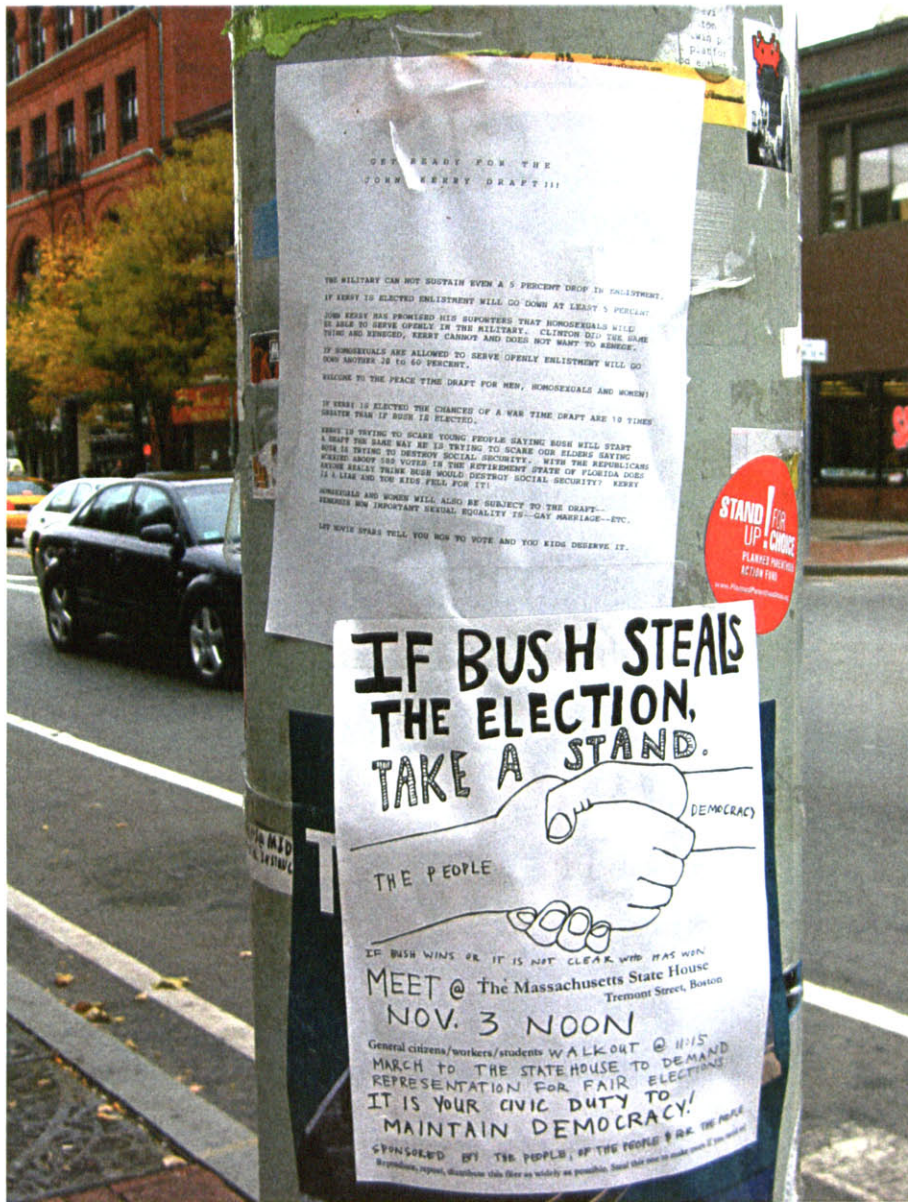 GET READY FOR THE
JOHN KERRY DRAFT!!!
THE MILITARY CAN NOT SUSTAIN EVEN A 5 PERCENT DROP IN ENLISTMENT.
IF KERRY IS ELECTED ENLISTMENT WILL GO DOWN AT LEAST 5 PERCENT
JOHN KERRY HAS PROMISED HIS SUPORTERS THAT HOMOSEXUALS WILL
BE ABLE TO SERVE OPENLY IN THE MILITARY. CLINTON DID THE SAME
THING AND RENEGED, KERRY CANNOT AND DOES NOT WANT TO RENEGE.
IF HOMOSEXUALS ARE ALLOWED TO SERVE OPENLY ENLISTMENT WILL GO
DOWN ANOTHER 20 to 60 PERCENT.
WELCOME TO THE PEACE TIME DRAFT FOR MEN, HOMOSEXUALS AND WOMEN!
IF KERRY IS ELECTED THE CHANCES OF A WAR TIME DRAFT ARE 10 TIMES
GREATER THAN IF BUSH IS ELECTED.
KERRY IS TRYING TO SCARE YOUNG PEOPLE SAYING BUSH WILL START
A DRAFT THE SAME WAY HE IS TRYING TO SCARE OUR ELDERS SAYING
BUSH IS TRYING TO DESTROY SOCIAL SECURITY. WITH THE REPUBLICANS
WORRIED ABOUT VOTES IN THE RETIREMENT STATE OF FLORIDA DOES
ANYONE REALLY THINK BUSH WOULD DESTROY SOCIAL SECURITY? KERRY
IS A LIAR AND YOU KIDS FELL FOR IT!
HOMOSEXUALS AND WOMEN WILL ALSO BE SUBJECT TO THE DRAFT--
REMEMBER HOW IMPORTANT SEXUAL EQUALITY IS--GAY MARRIAGE--ETC.
LET MOVIE STARS TELL YOU HOW TO VOTE AND YOU KIDS DESERVE IT.
STAND UP! FOR CHOICE
PLANNED PARENTHOOD
ACTION FUND
IF BUSH STEALS
THE ELECTION,
TAKE A STAND.
DEMOCRACY
THE PEOPLE
IF BUSH WINS OR IT IS NOT CLEAR WHO HAS WON
MEET @ The Massachusetts State House
Tremont Street, Boston
NOV. 3 NOON
General citizens/workers/students WALKOUT @ 11:15
MARCH TO THE STATEHOUSE TO DEMAND
REPRESENTATION FOR FAIR ELECTIONS
IT IS YOUR CIVIC DUTY TO
MAINTAIN DEMOCRACY!
SPONSORED BY THE PEOPLE, OF THE PEOPLE & FOR THE PEOPLE
Reproduce, repost, distribute this flier as widely as possible. Steal this one to make more if you need to!